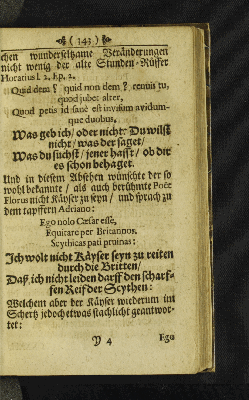 ( 143. )
chen wunderseltzame Veränderungen
nicht wenig der alte Stunden-Rüffer
Horatius l. 2. Ep. 2.
Quid dem? quid non dem? renuis tu,
quod jubet alter,
Quod petis id sanè est invisum acidum-
que duobus,
Was geb ich / oder nicht? Du wilst
nicht / was der saget /
Was du suchst / jener hasst / ob dir
es schon behaget.
Und in diesem Absehen wünschte der so
wohl bekannte / als auch berühmte Poët
Florus nicht Käyser zu seyn / und sprach zu
dem tapffern Adriano:
Ego nolo Cæsar esse,
Equitare per Britannos,
Scythicas pati pruinas:
Ich wolt nicht Käyser seyn zu reiten
durch die Britten /
Daß ich nicht leiden darff den scharf-
fen Reif der Scythen:
Welchem aber der Käyser wiederum im
Schertz jedoch etwas stachlicht geantwor-
tet:
Y 4 Ego